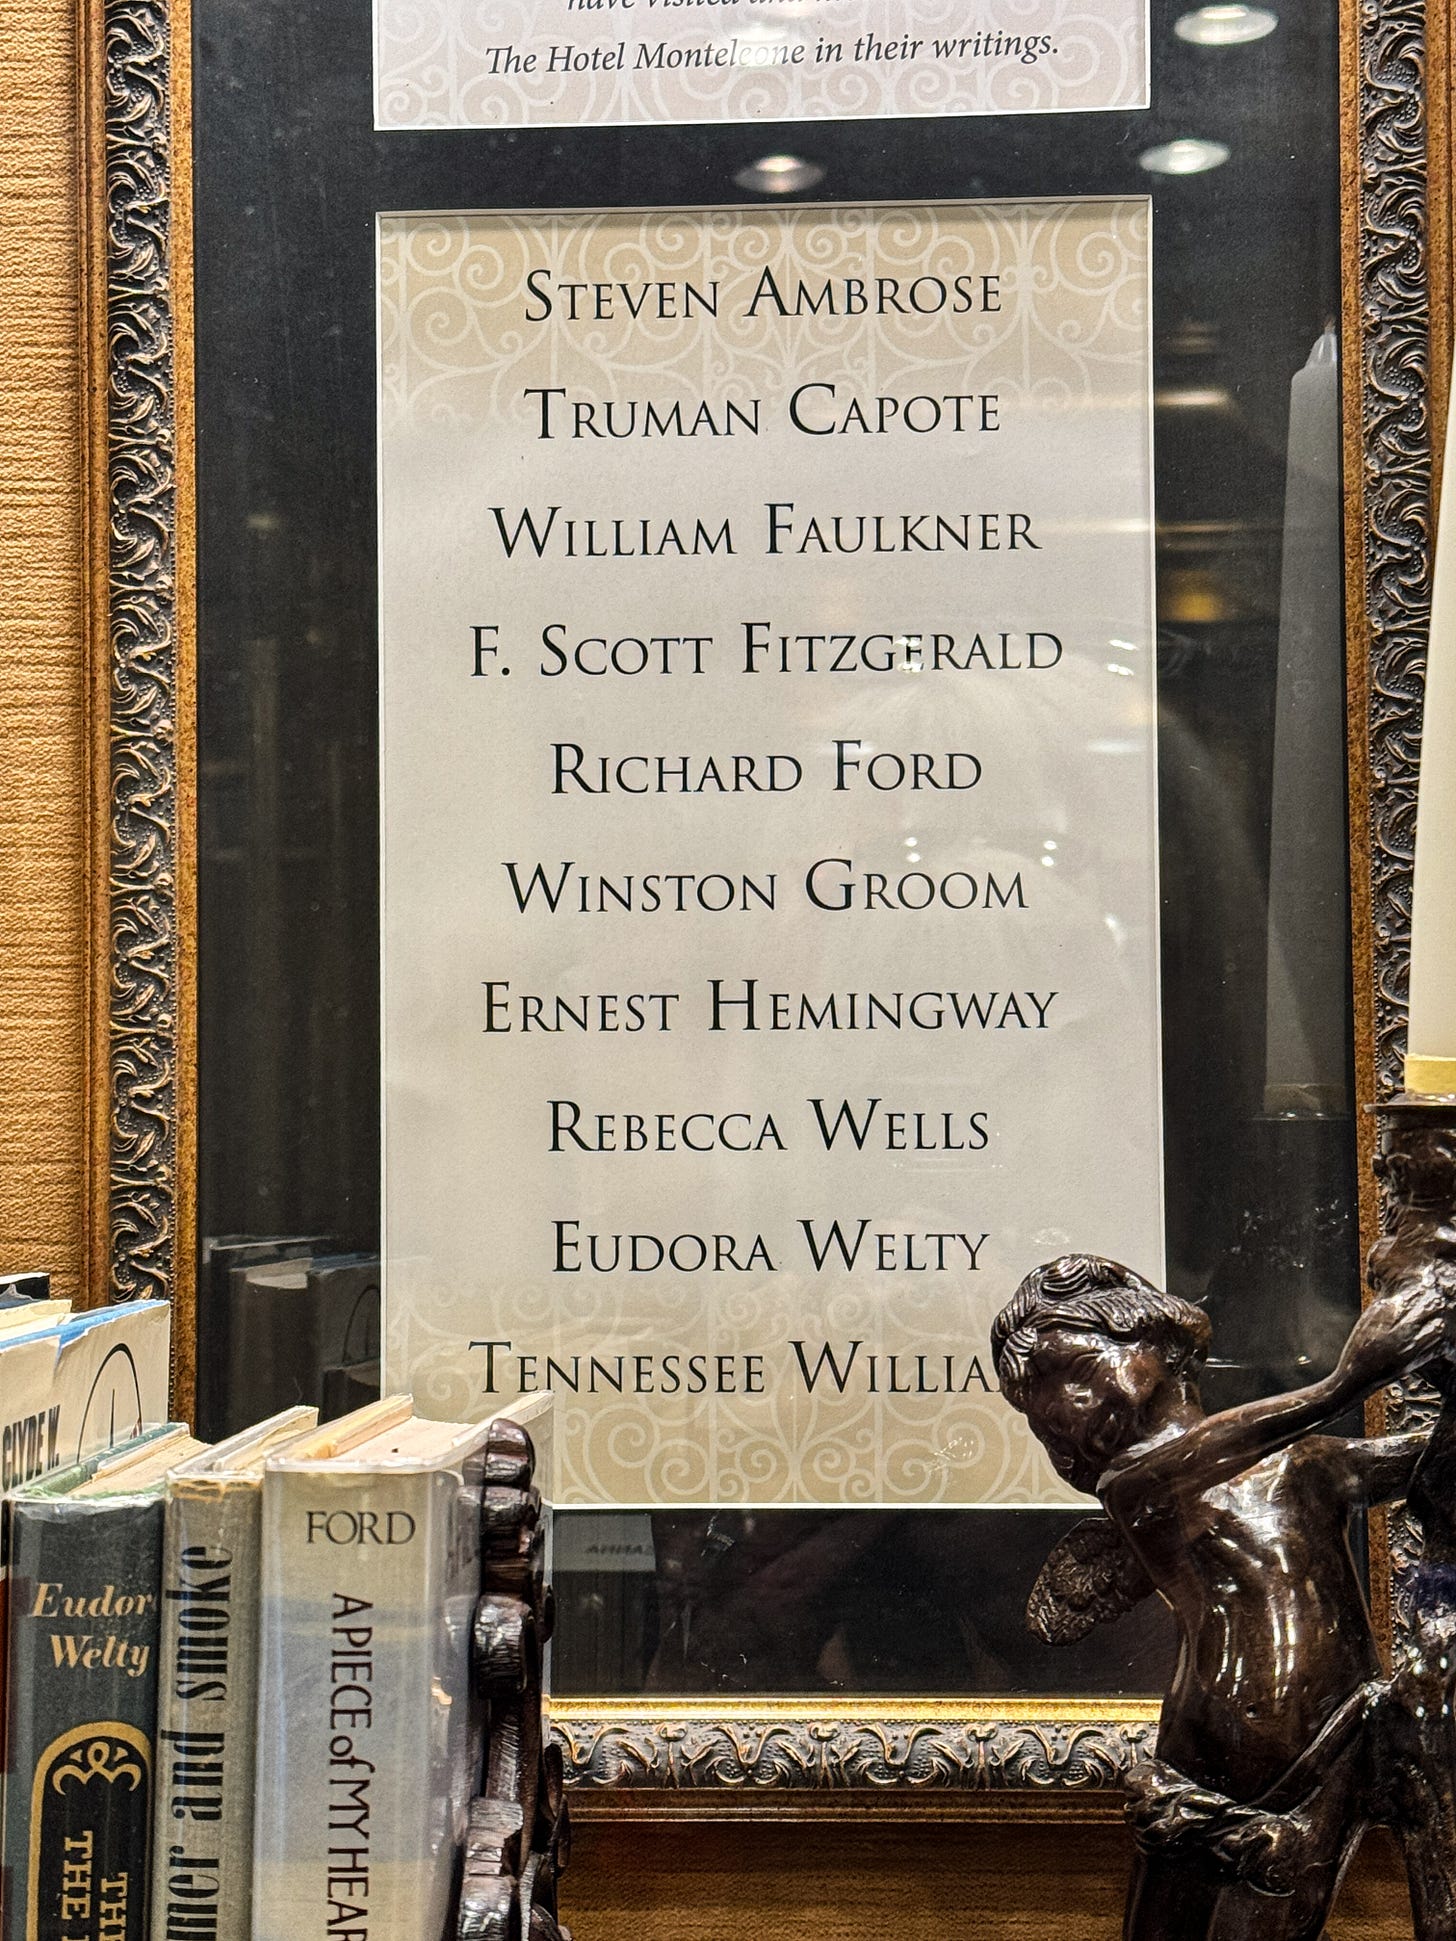 have visited and
The Hotel Monteleone in their writings.
STEVEN AMBROSE
TRUMAN CAPOTE
WILLIAM FAULKNER
F. SCOTT FITZGERALD
RICHARD FORD
WINSTON GROOM
ERNEST HEMINGWAY
REBECCA WELLS
EUDORA WELTY
TENNESSEE WILLIA
CLYDE W.
Eudor
Welty
THE
THE
mer and smoke
FORD
A PIECE of MY HEAR